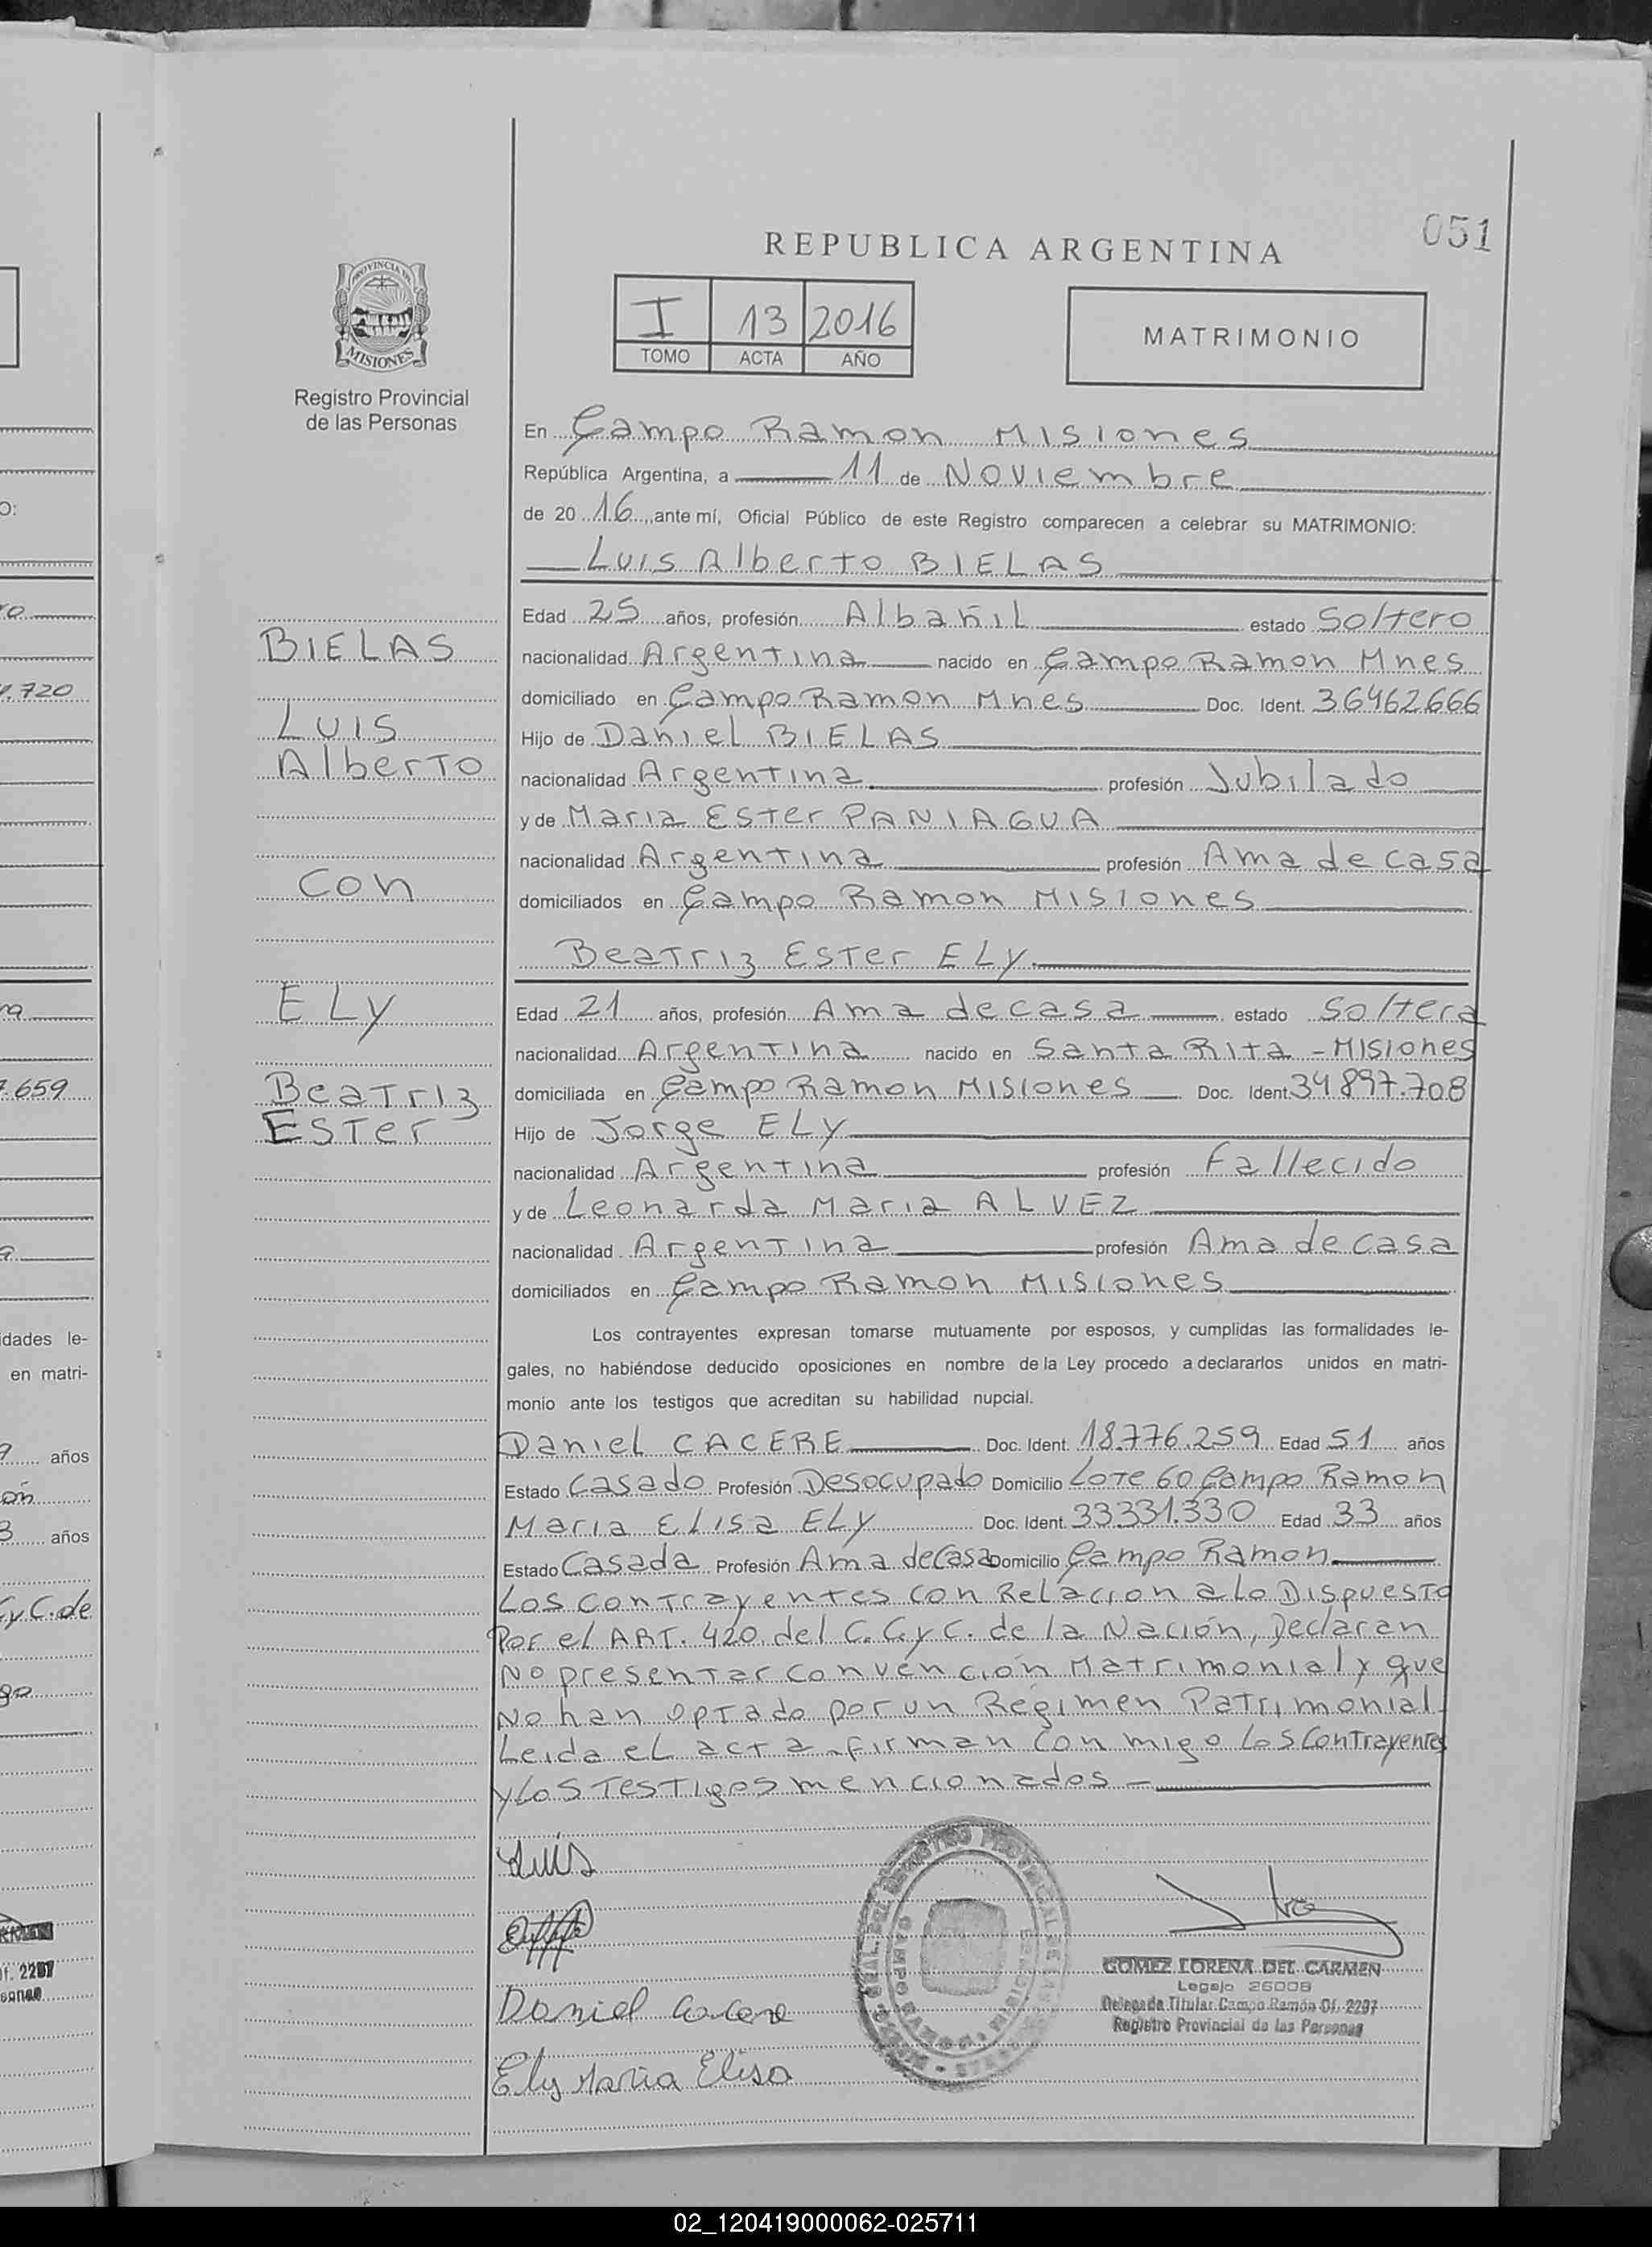 051
REPUBLICA ARGENTINA
PROVINCIA DE
MISIONES
Registro Provincial
de las Personas
I 13 2016
TOMO ACTA AÑO
MATRIMONIO
En Campo Ramon Misiones
República Argentina, a 11 de Noviembre
de 20 16, ante mí, Oficial Público de este Registro comparecen a celebrar su MATRIMONIO:
Luis Alberto BIELAS
BIELAS
Luis
Alberto
con
ELY
Beatriz
Ester
Edad 25 años, profesión Albañil estado Soltero
nacionalidad Argentina nacido en Campo Ramon Mnes
domiciliado en Campo Ramon Mnes Doc. Ident. 36462666
Hijo de Daniel BIELAS
nacionalidad Argentina profesión Jubilado
y de Maria Ester PANIAGUA
nacionalidad Argentina profesión Ama de casa
domiciliados en Campo Ramon Misiones
Beatriz Ester ELY
Edad 21 años, profesión Ama de casa estado Soltera
nacionalidad Argentina nacido en Santa Rita - Misiones
domiciliada en Campo Ramon Misiones Doc. Ident. 34897.708
Hijo de Jorge ELY
nacionalidad Argentina profesión Fallecido
y de Leonarda Maria ALVEZ
nacionalidad Argentina profesión Ama de casa
domiciliados en Campo Ramon Misiones
Los contrayentes expresan tomarse mutuamente por esposos, y cumplidas las formalidades le-
gales, no habiéndose deducido oposiciones en nombre de la Ley procedo a declararlos unidos en matri-
monio ante los testigos que acreditan su habilidad nupcial.
Daniel CACERE Doc. Ident. 18.776.259 Edad 51 años
Estado Casado Profesión Desocupado Domicilio Lote 60 Campo Ramon
Maria Elisa ELY Doc. Ident. 33331.330 Edad 33 años
Estado Casada Profesión Ama de Casa Domicilio Campo Ramon
Los contrayentes con Relacion a lo Dispuesto
Por el ART. 420 del C.C.y C. de la Nación, Declaran
No presentar convención Matrimonial y que
No han optado por un Régimen Patrimonial.
Leida el acta firman con migo los Contrayentes
y los Testigos mencionados -
Luis
Daniel Cacere
Ely Maria Elisa
GOMEZ LORENA DEL CARMEN
Legajo 26008
Delegada Titular Campo Ramón Of. 2297
Registro Provincial de las Personas
.720
.659
idades le-
en matri-
años
años
C.y C. de
Of. 2297
02_120419000062-025711